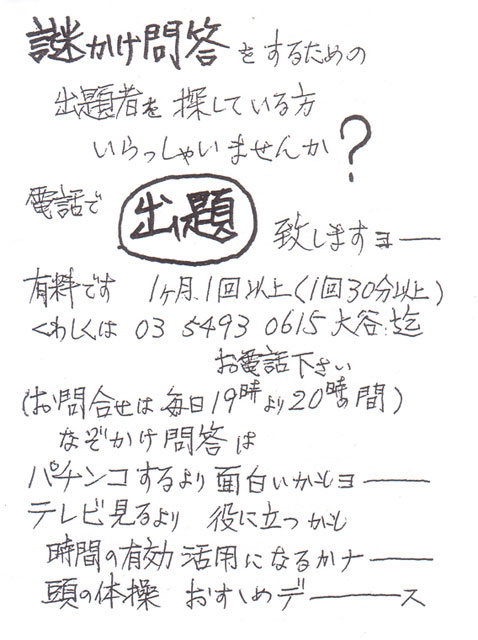 謎かけ問答をするための
出題者を探している方
いらっしゃいませんか?
電話で 出題 致しますョー
有料です 1ヶ月1回以上(1回30分以上)
くわしくは 03 5493 0615 大谷迄
お電話下さい
(お問合せは毎日19時より20時の間)
なぞかけ問答は
パチンコするより面白いかもョー
テレビ見るより 役に立つかも
時間の有効活用になるかナー
頭の体操 おすすめデース